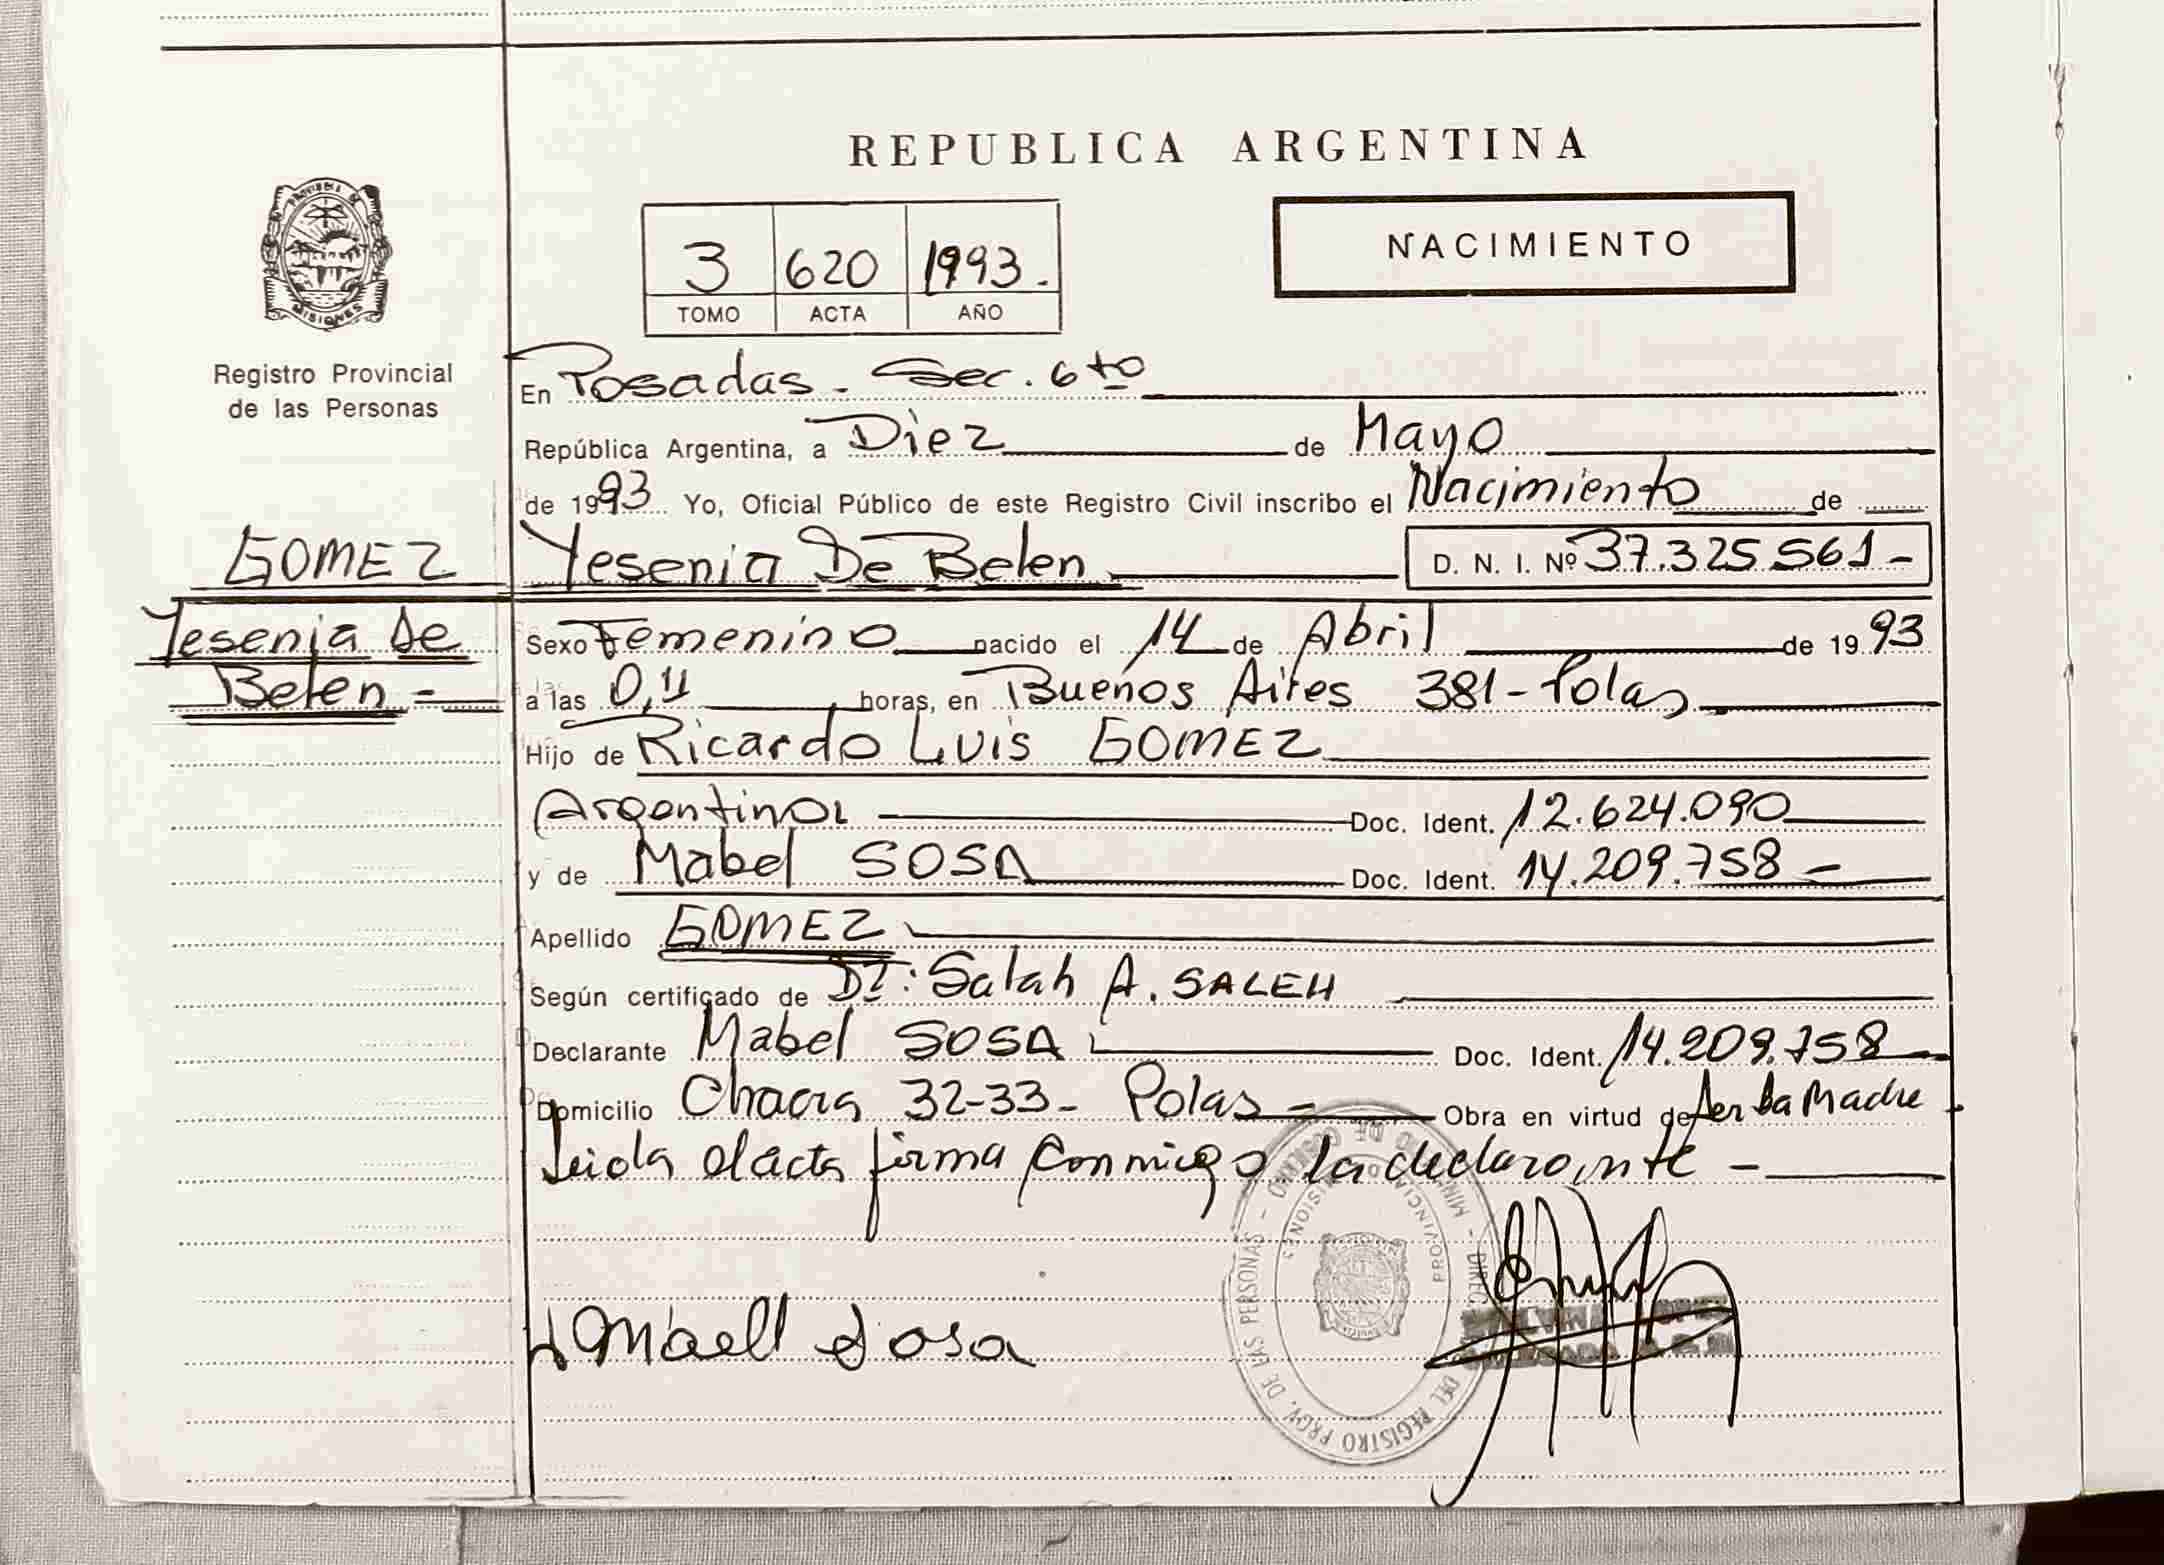 REPUBLICA ARGENTINA
NACIMIENTO
3 620 1993.
TOMO ACTA AÑO
PROVINCIA DE MISIONES
Registro Provincial
de las Personas
En Posadas - Sec. 6to
República Argentina, a Diez de Mayo
de 1993 Yo, Oficial Público de este Registro Civil inscribo el Nacimiento de
GOMEZ
Yesenia De Belen -
Yesenia De Belen D. N. I. Nº 37.325.561-
Sexo Femenino nacido el 14 de Abril de 1993
a las 0,11 horas, en Buenos Aires 381 - Pdas
Hijo de Ricardo Luis GOMEZ
Argentina Doc. Ident. 12.624.090
y de Mabel SOSA Doc. Ident. 14.209.758 -
Apellido GOMEZ
Según certificado de Dr: Salah A. SALEH
Declarante Mabel SOSA Doc. Ident. 14.209.758
Domicilio Chacra 32-33 - Pdas - Obra en virtud de ser la Madre
Leida el acta firma conmigo la declarante -
Sosa
MINISTERIO DE GOBIERNO - DIREC. DEL REGISTRO PROV. DE LAS PERSONAS -
PROVINCIA DE MISIONES